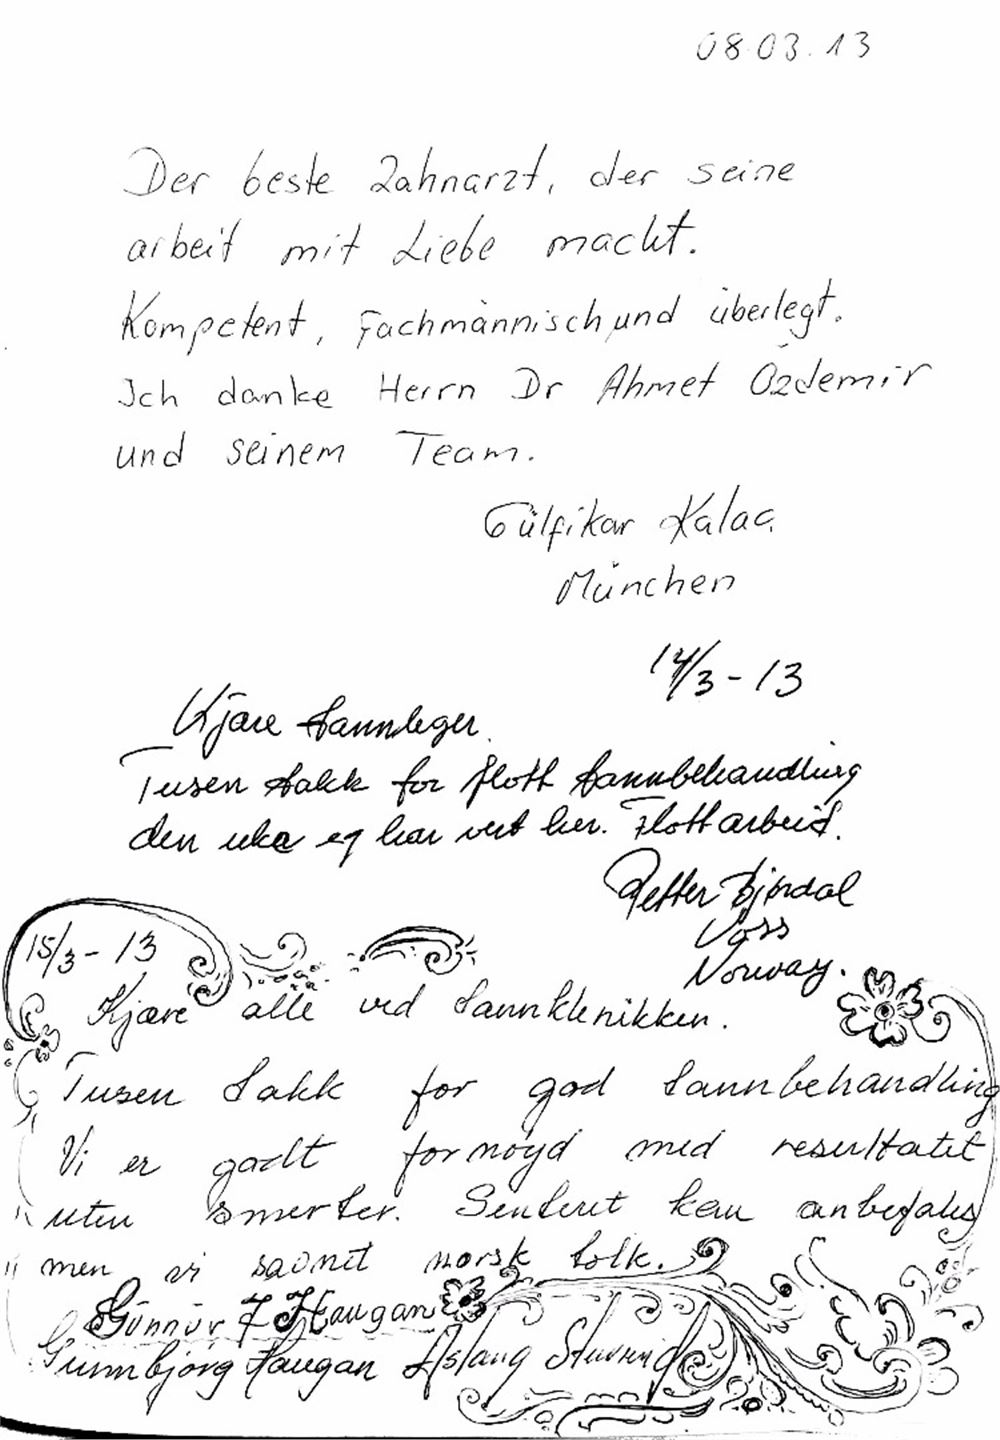 08.03.13
Der beste Zahnarzt, der seine
arbeit mit Liebe macht.
Kompetent, Fachmännisch und überlegt.
Ich danke Herrn Dr Ahmet Özdemir
und seinem Team.
Gülfikar Kalac
München
14/3-13
Kjære tannleger.
Tusen takk for flott tannbehandling
den uka eg har vert her. Flott arbeid.
Petter Bjørdal
Voss
Norway.
15/3-13
Kjære alle ved tannklenikken.
Tusen takk for god tannbehandling
Vi er godt fornøyd med resultatet
uten smerter. Senteret kan anbefales
men vi savnet norsk tolk.
Gunnar J Haugan
Gunnbjørg Haugan Aslaug